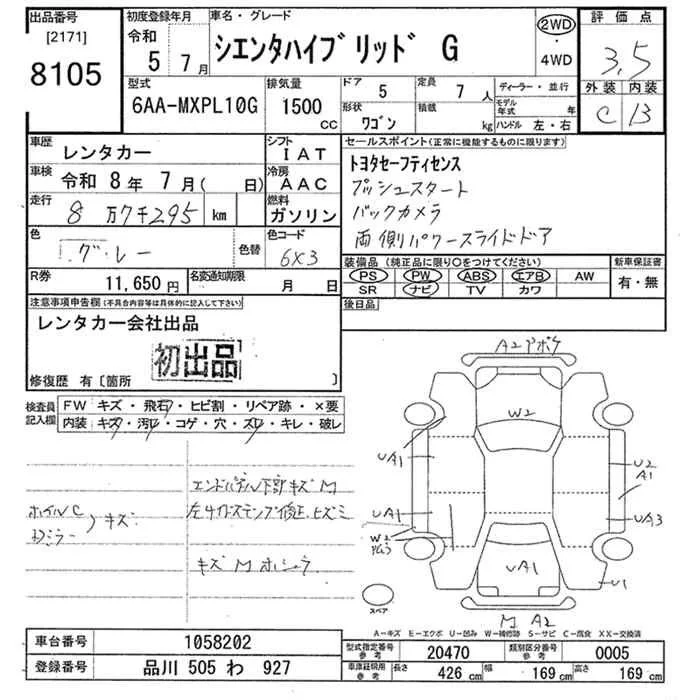 出品番号
[2171]
8105
初度登録年月
令和
5 7月
車名・グレード
シエンタハイブリッド G
2WD
・
4WD
評価点
3.5
外装 内装
C B
型式
6AA-MXPL10G
排気量
1500
CC
ドア
5
定員
7人
形状
ワゴン
積載
kg
ディーラー・並行
モデル年式 年
ハンドル 左・右
車歴
レンタカー
シフト
IAT
車検 令和 8年 7月( 日)
冷房
AAC
走行
8万7千295 km
燃料
ガソリン
セールスポイント(正常に機能するものに限ります)
トヨタセーフティセンス
プッシュスタート
バックカメラ
両側パワースライドドア
色
グレー
色替
色コード
6X3
R券
11,650円
名変通知期限
月 日
装備品(純正品に限り○をつけてください)
PS PW ABS エアB AW
SR ナビ TV カワ
新車保証書
有・無
後日品
注意事項申告欄(不具合内容等は具体的に記入して下さい)
レンタカー会社出品
初出品
修復歴 有〔箇所 〕
検査員記入欄
FW キズ・飛石・ヒビ割・リペア跡・×要
内装 キズ・汚レ・コゲ・穴・スレ・キレ・破レ
ホイルC
Dミラー
キズ
エンドパネル下部キズM
左サイドステップ修正ヒズミ
キズM
A2
W2
UA1
U2
A1
UA1
UA3
W2
UA1
U1
M A2
スペア
A―キズ E―エクボ U―凹み W―補修跡 S―サビ C―腐食 XX―交換済
車台番号
1058202
登録番号
品川 505 わ 927
型式指定番号
参考
20470
類別区分番号
参考
0005
車庫証明用
参考
長さ 426cm 幅 169cm 高さ 169cm